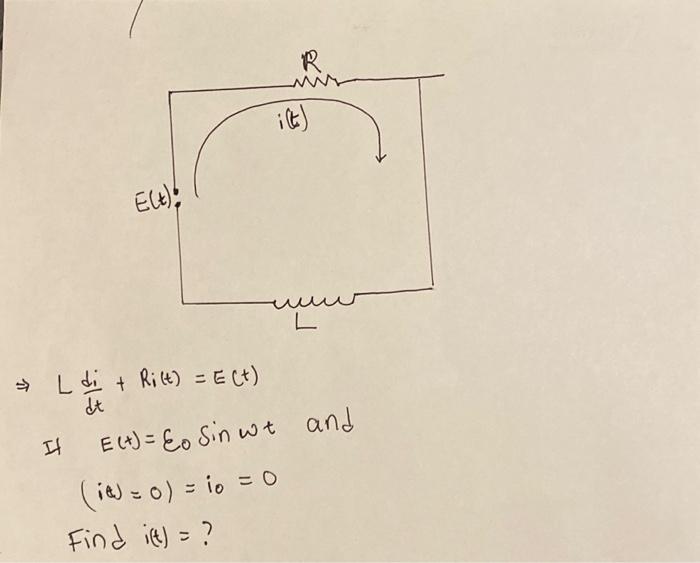 R
i(t)
E(t)
L
⇒ L di/dt + Ri(t) = E(t)
If E(t) = ε0 Sin wt and
(i(t) = 0) = i0 = 0
Find i(t) = ?